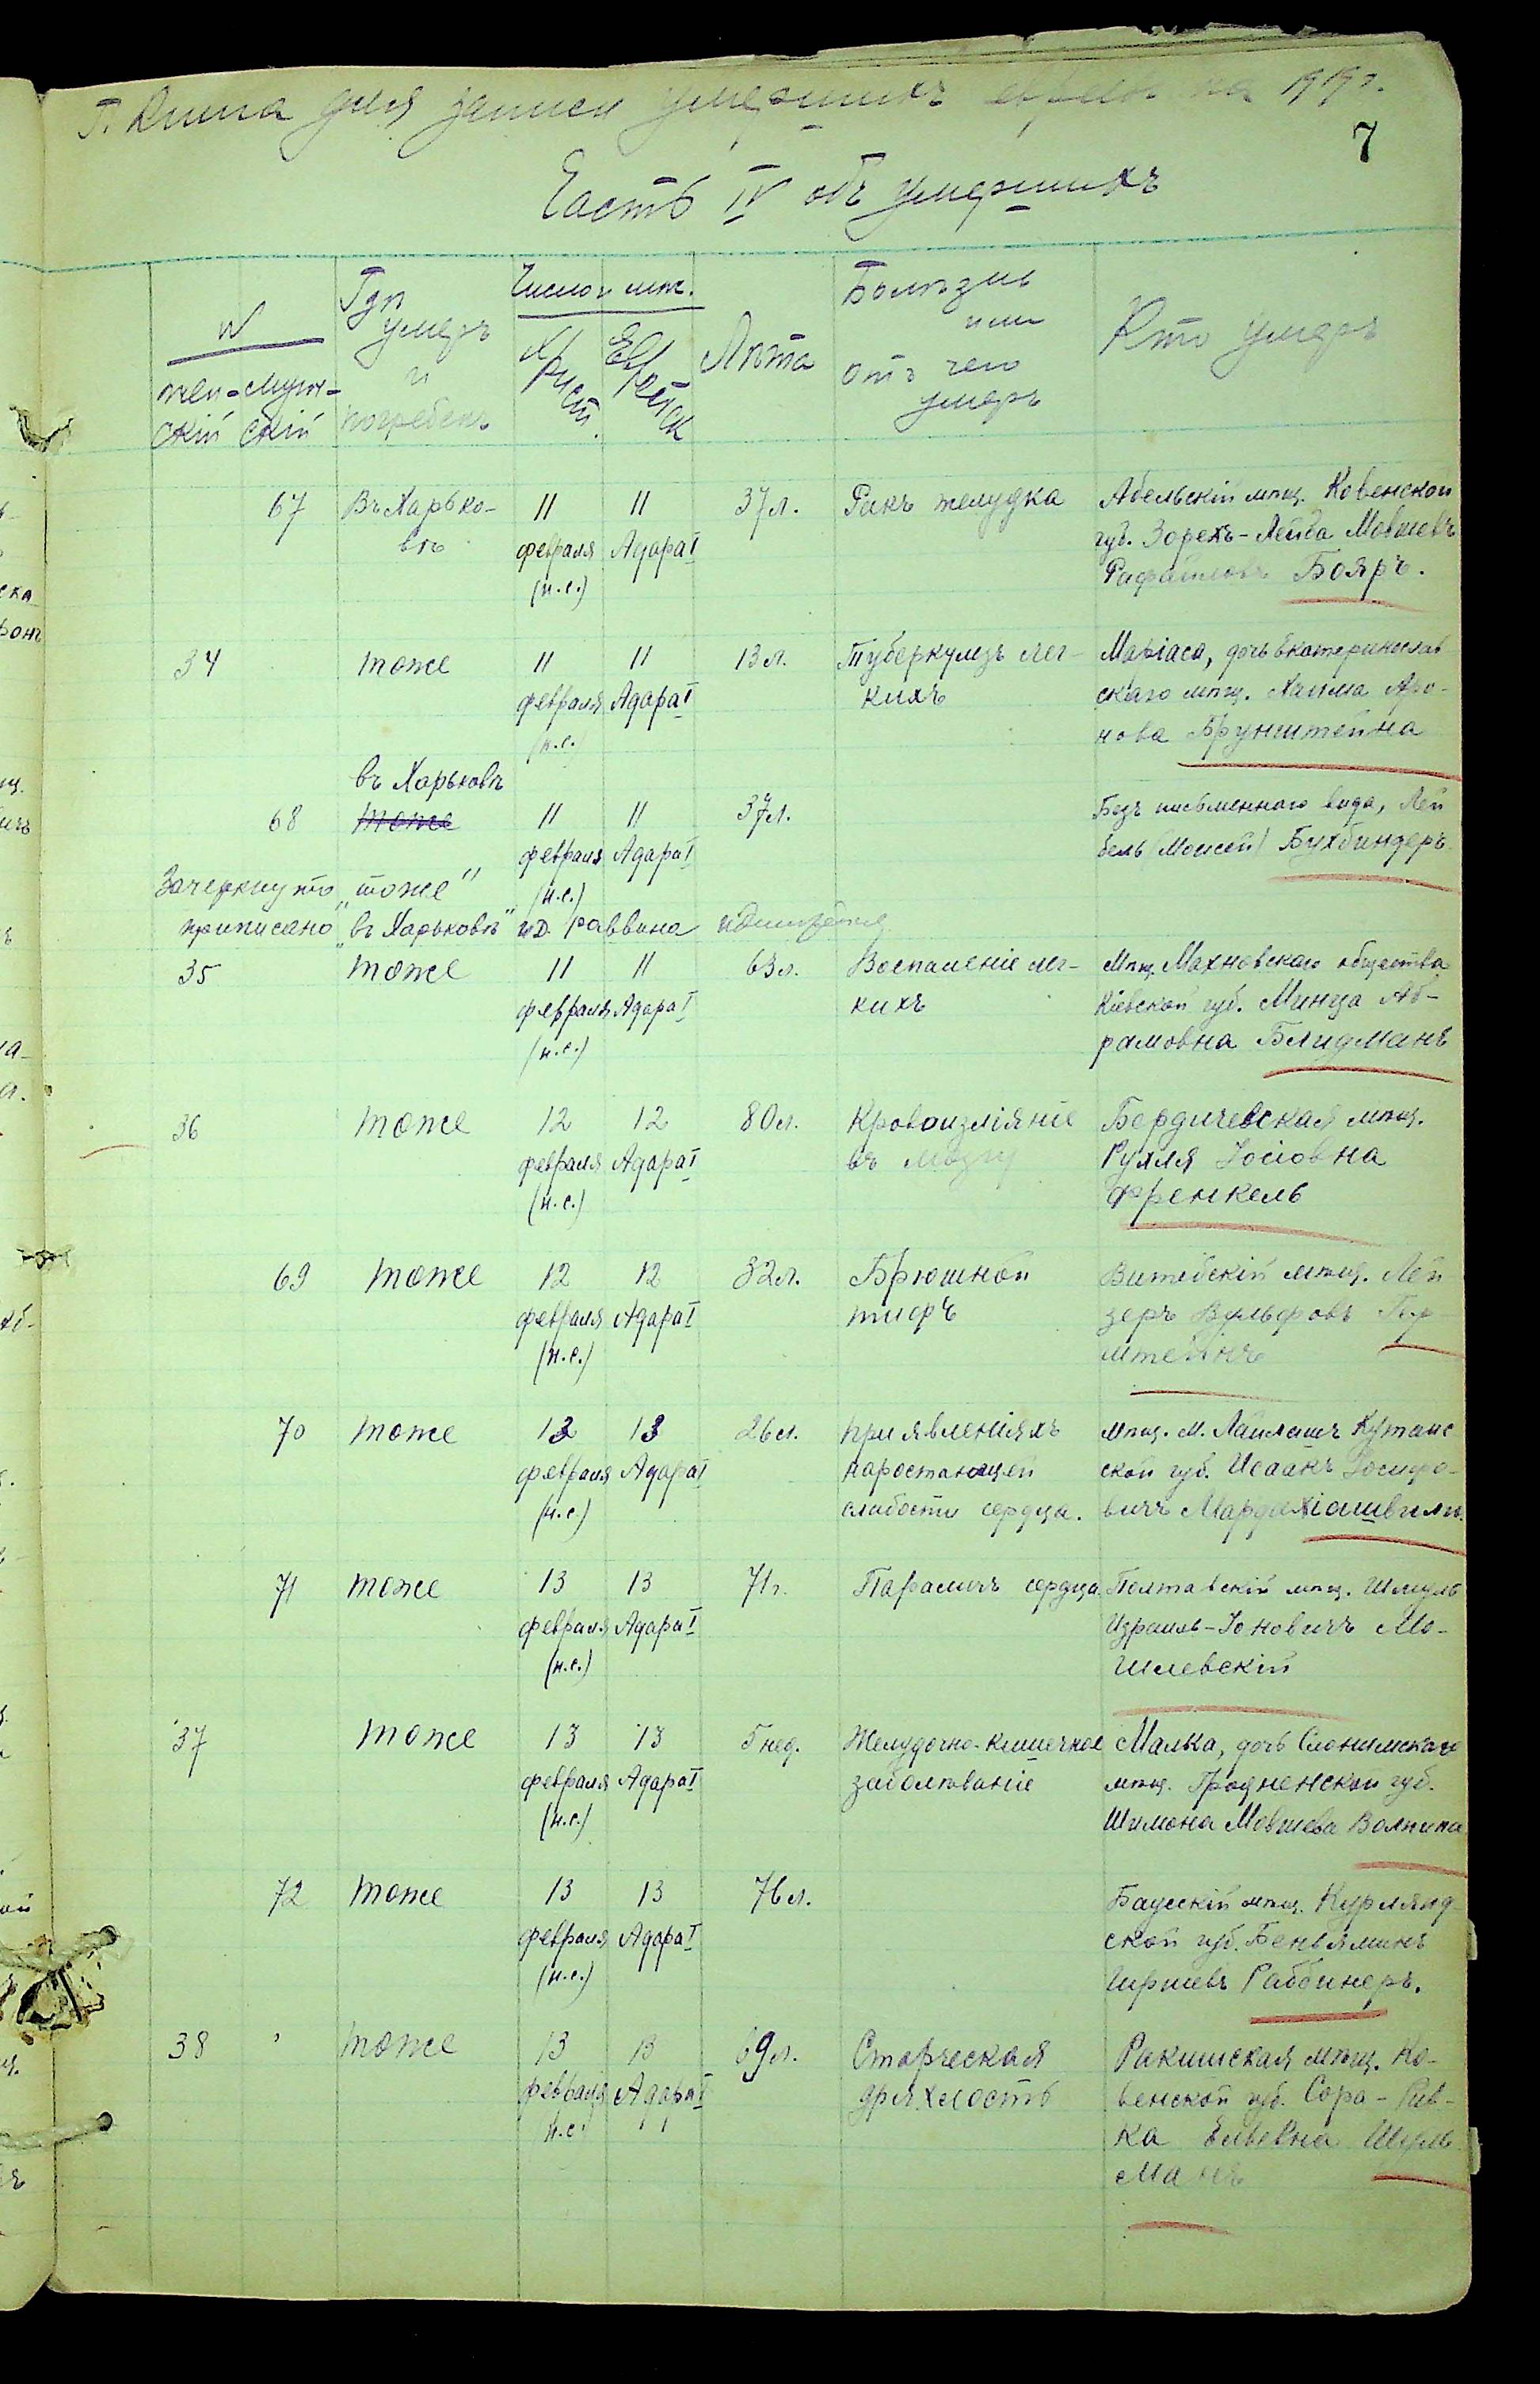 Книга для записи умершихъ евреевъ на 1919 г.
7
Часть IV объ умершихъ
№
жен- мужс-
скій скій
Гдѣ
умеръ
и
погребенъ
Число и мѣс.
Христ.
Еврейск
Лѣта
Болѣзнь
или
отъ чего
умеръ
Кто умеръ
67 Въ Харько- 11 11 37 л. Ракъ желудка Абельскій мѣщ. Ковенской
вѣ февраля Адара I губ. Зорехъ-Лейба Мовшевъ
(н.с.) Бояръ.
34 тоже 11 11 13 л. Туберкулезъ лег- Маріаса, дочь Екатеринослав-
февраля Адара I кихъ скаго мѣщ. Хаима Аро-
(н.с.) нова Брунштейна
въ Харьковѣ
68 тоже 11 11 37 л. Безъ письменнаго вида, Лей
февраля Адара I бель (Моисей) Бухбиндеръ
Зачеркнуто „тоже" (н.с.)
приписано „въ Харьковѣ" и.д. раввина
35 тоже 11 11 63 л. Воспаленіе лег- Мѣщ. Махновскаго общества
февраля Адара I кихъ Кіевской губ. Минца Аб-
(н.с.) рамовна Блидманъ
36 тоже 12 12 80 л. Кровоизліяніе Бердичевская мѣщ.
февраля Адара I въ мозгу Рухля Іосіовна
(н.с.) Френкель
69 тоже 12 12 32 л. Брюшной Витебскій мѣщ. Лей
февраля Адара I тифъ зеръ Вульфовъ
(н.с.) штейнъ
70 тоже 13 13 26 л. При явленіяхъ мѣщ. м. Лайлашъ Кутаис
февраля Адара I наростающей ской губ. Исаакъ Іосифо-
(н.с.) слабости сердца. вичъ Мардахіашвили.
71 тоже 13 13 71 г. Параличъ сердца Полтавскій мѣщ. Шмуль
февраля Адара I Израиль-Іоновичъ Мо-
(н.с.) шлевскій
37 тоже 13 13 5 нед. Желудочно-кишечное Малка, дочь Слонимскаго
февраля Адара I заболѣваніе мѣщ. Гродненской губ.
(н.с.) Шимона Мовшева Волнина
72 тоже 13 13 76 л. Баусскій мѣщ. Курлянд
февраля Адара I ской губ. Беньяминъ
(н.с.) Гиршевъ Раббинеръ.
38 тоже 13 13 69 л. Старческая Ракишская мѣщ. Ко-
февраля Адара I дряхлость венской губ. Сора-Рив-
н.с. ка Шуль
манъ